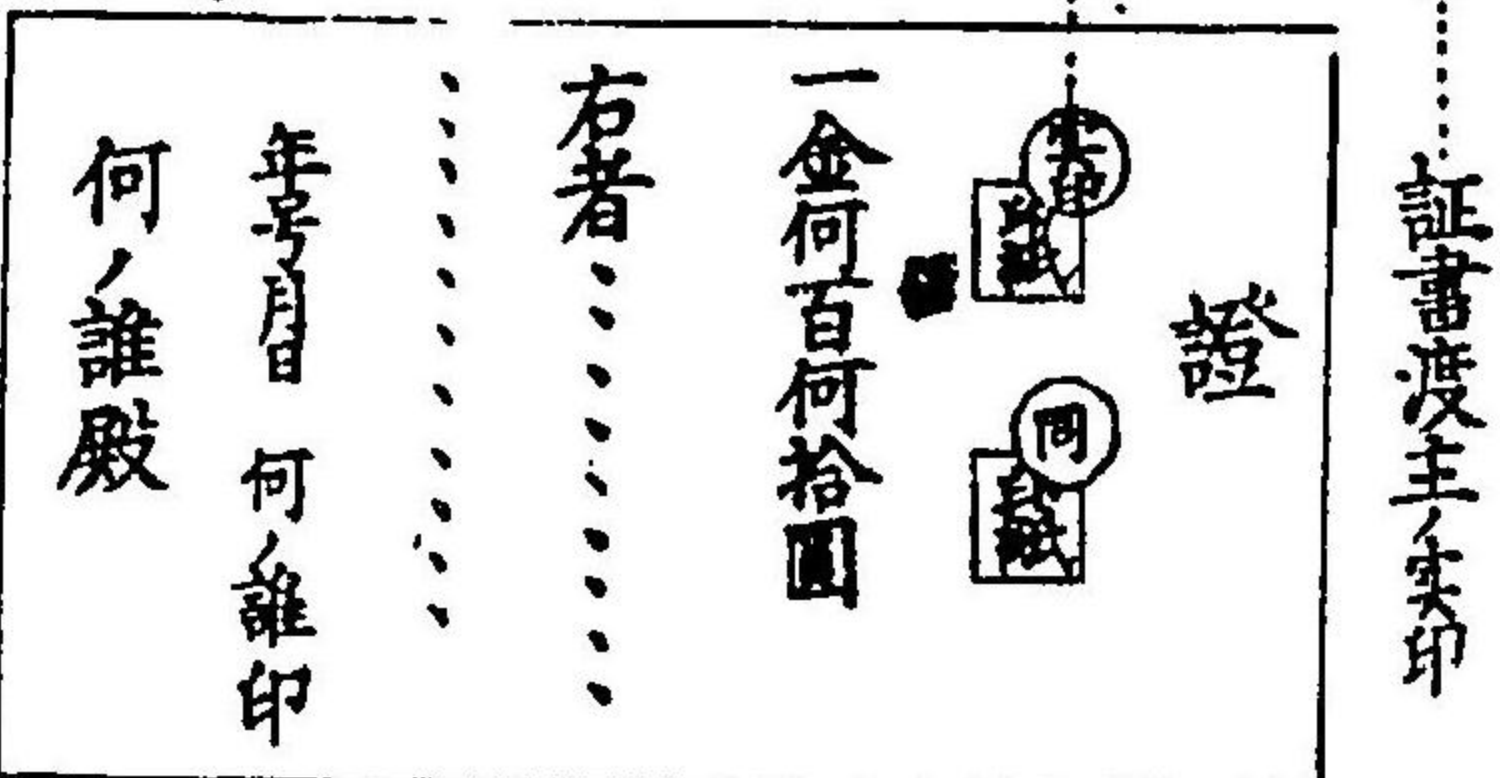 証書渡主ノ実印
證
実印
同
印紙
一金何百何拾圓
右者、、、、、、、、
、、、、、、、、、、
年号月日 何ノ誰印
何ノ誰殿